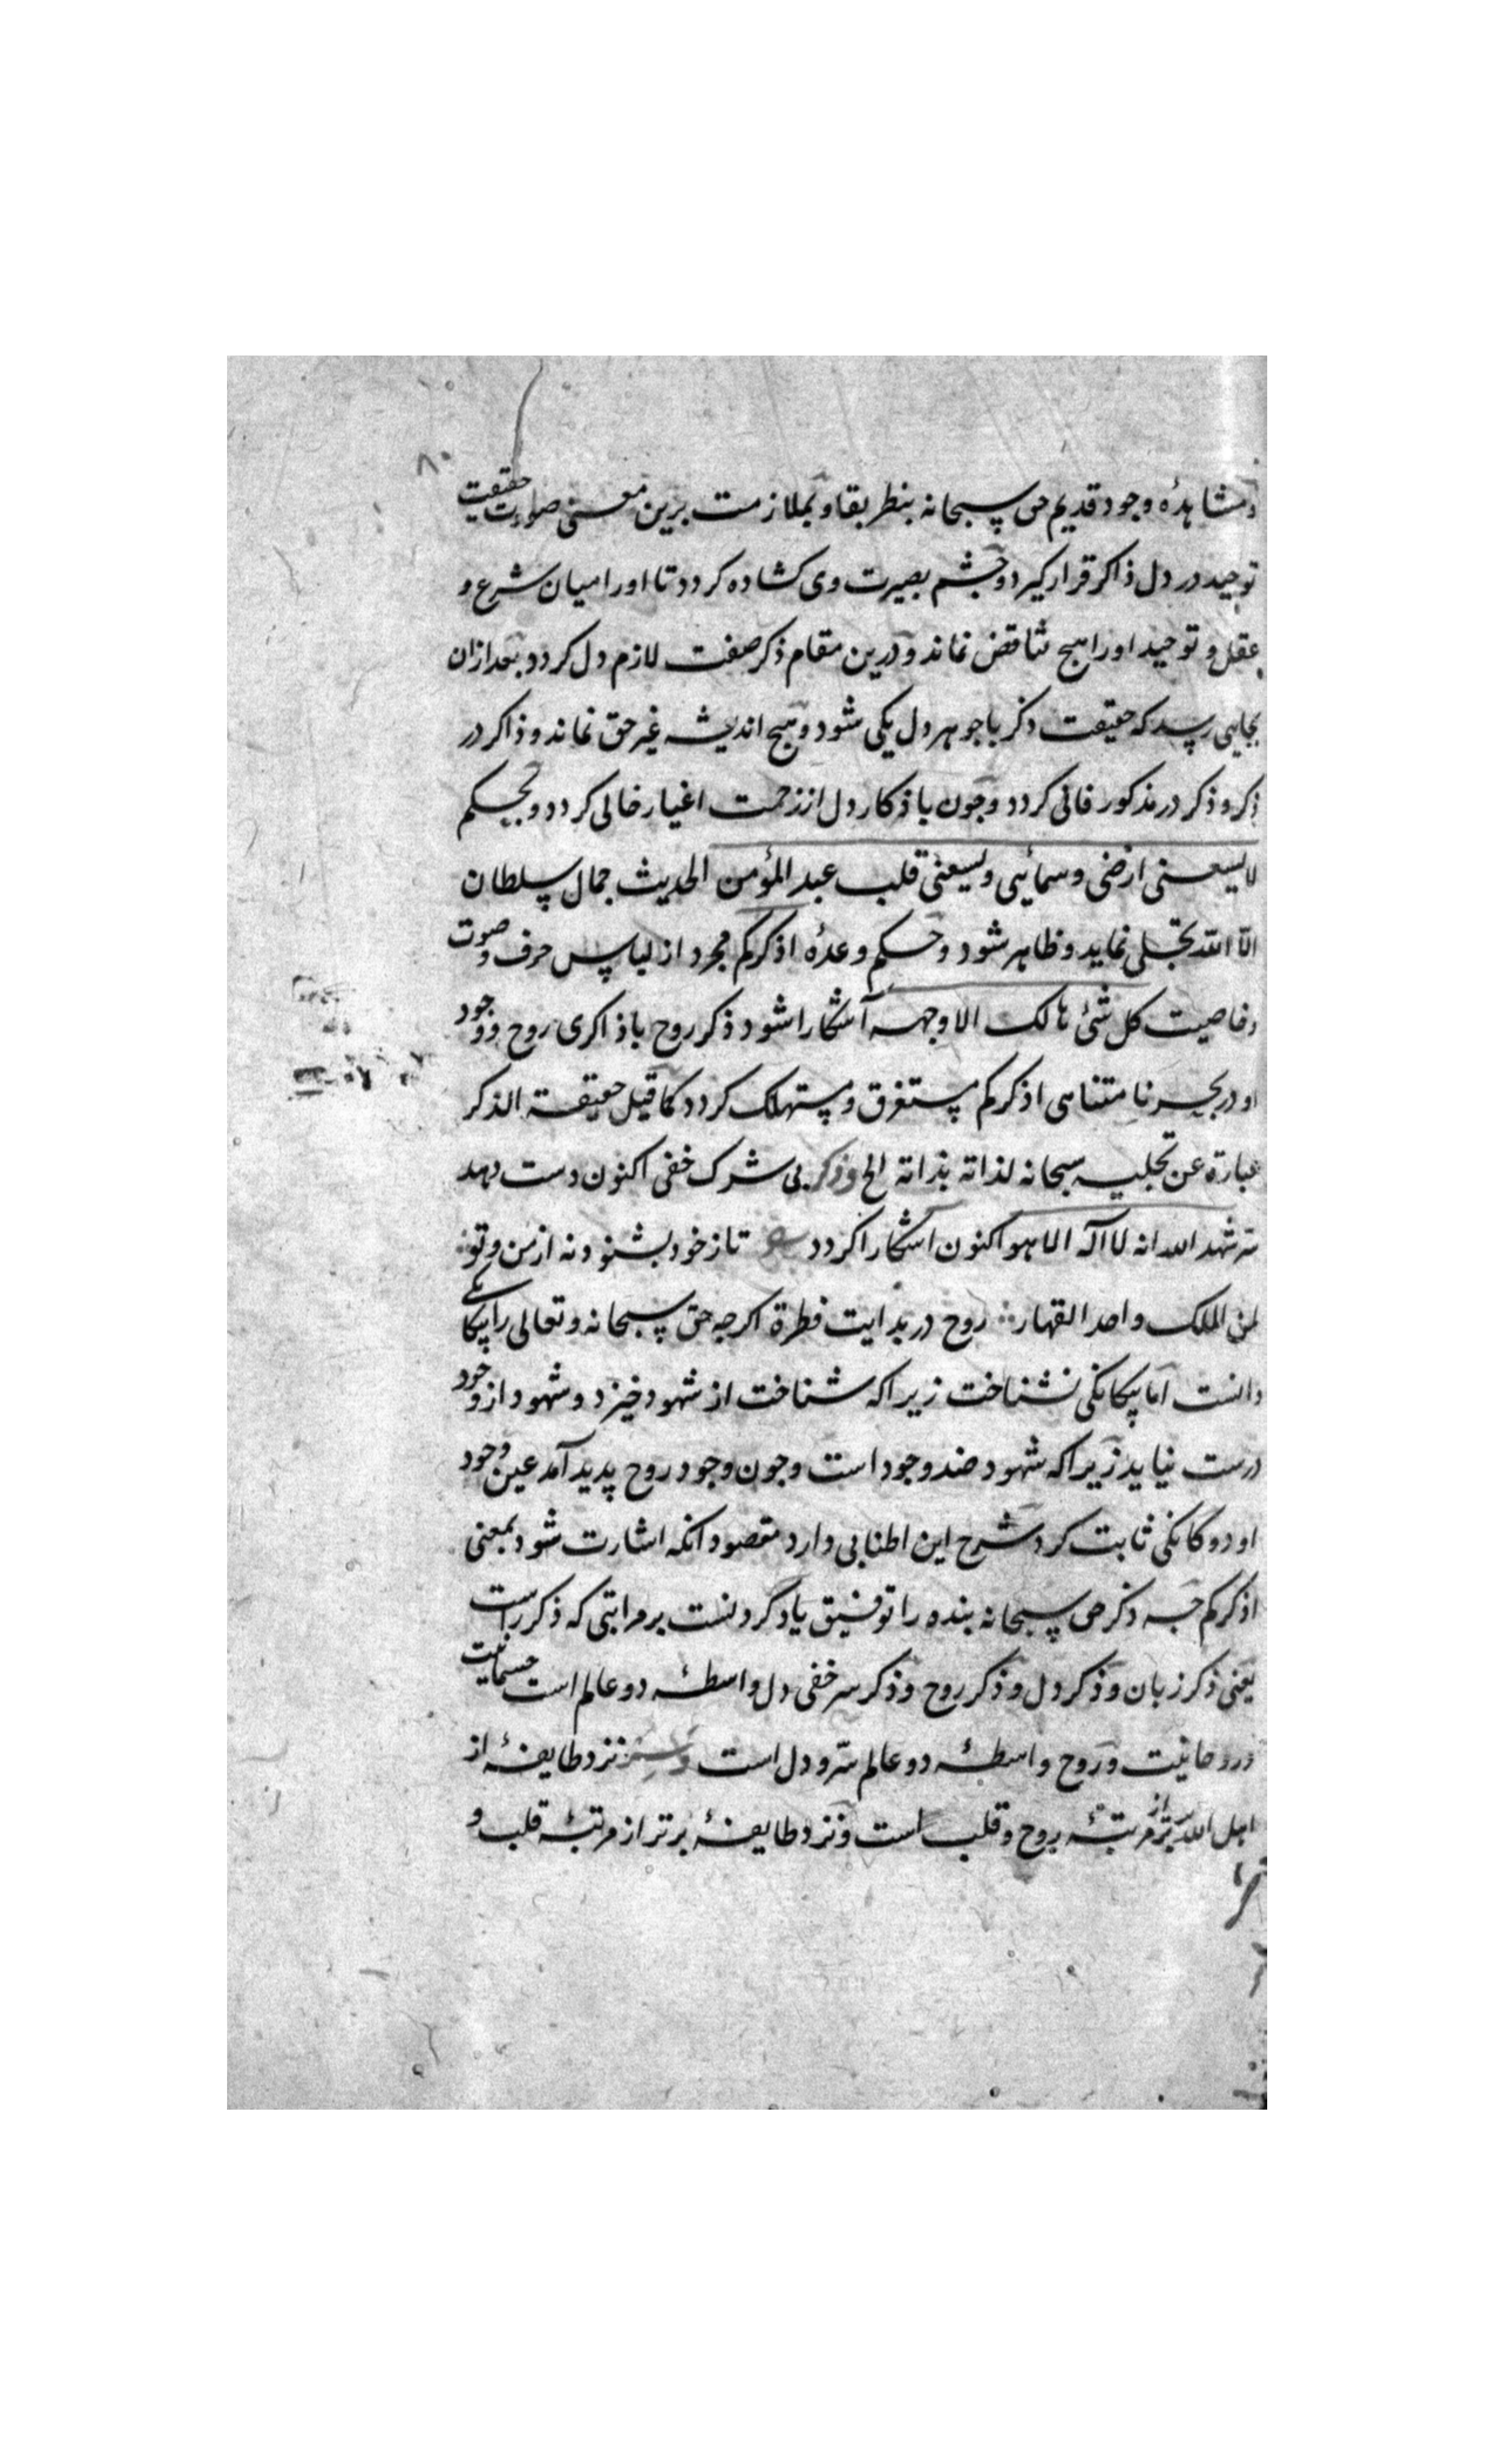 ۸۰
و مشاهدهٔ وجود قدیم حق سبحانه بنظر بقا و بملازمت برین معنی صورت حقیقت
توحید در دل ذاکر قرار کیرد و چشم بصیرت وی کشاده کردد تا او را میان شرع و
عقل و توحید او را هیچ تناقض نماند و درین مقام ذکر صفت لازم دل کردد و بعد ازان
بجایی رسد که حقیقت ذکر با جوهر دل یکی شود و هیچ اندیشه غیر حق نماند و ذاکر در
ذکر و ذکر در مذکور فانی کردد و چون باذکار دل از زحمت اغیار خالی کردد و بحکم
لا یسعنی ارضی و سمائیی و یسعنی قلب عبد المؤمن الحدیث جمال سلطان
الا الله تجلی نماید و ظاهر شود و حکم وعدهٔ اذکرکم مجرد از لباس حرف و صوت
و خاصیت کل شئ هالک الا وجهه آشکارا شود ذکر روح با ذاکری روح و وجود
او در بحر نا متناهی اذکرکم مستغرق و مستهلک کردد کما قیل حقیقة الذکر
عبارة عن تجلیه سبحانه لذاته بذاته الخ و ذکر بی شرک خفی اکنون دست دهد
سر شهد الله انه لا اله الا هو اکنون آشکارا کردد تا ز خود بشنود نه از من و تو
لمن الملک واحد القهار روح در بدایت فطرة اکرچه حق سبحانه و تعالی را بیکانکی
دانست اما بیکانکی نشناخت زیرا که شناخت از شهود خیزد و شهود از وجود
درست نیاید زیرا که شهود ضد وجود است و چون وجود روح پدید آمد عین وجود
او دوکانکی ثابت کرد شرح این اطنابی دارد مقصود انکه اشارت شود بمعنی
اذکرکم چه ذکر حق سبحانه بنده را توفیق یاد کردنست بر مراتبی که ذکر راست
یعنی ذکر زبان و ذکر دل و ذکر روح و ذکر سر خفی دل واسطهٔ دو عالم است جسمانیت
و روحانیت و روح واسطهٔ دو عالم سر و دل است و سر نزد طایفهٔ از
اهل الله برتر از مرتبهٔ روح و قلب است و نزد طایفهٔ برتر از مرتبهٔ قلب و